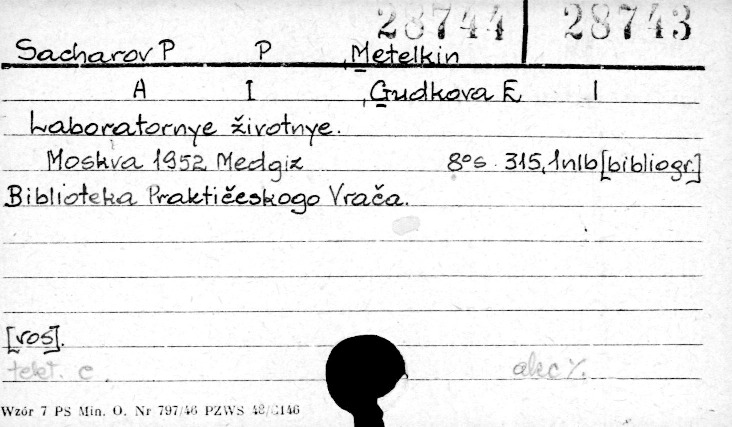 28744 28743
Sacharov P P , Metelkin
A I , Gudkova E I
Laboratornye životnye.
Moskva 1952 Medgiz 8°s. 315, 1nlb [bibliogr.]
Biblioteka Praktičeskogo Vrača.
[ros].
tekt. c
Wzór 7 PS Min. O. Nr 797/46 PZWS 48/3146